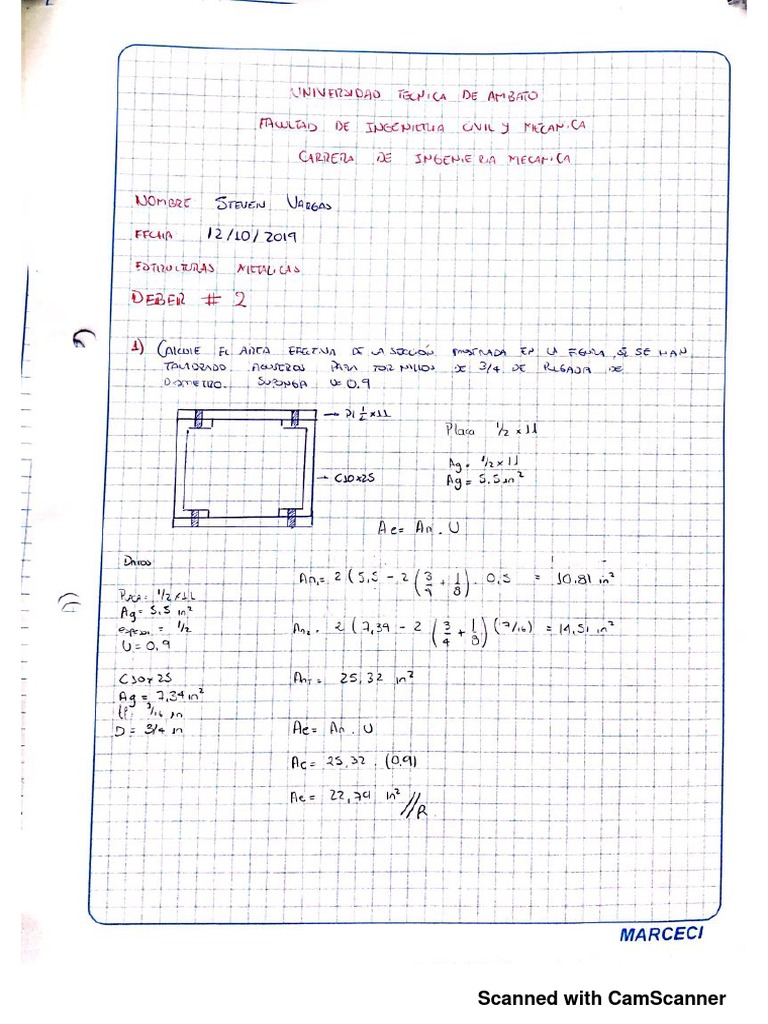 UNIVERSIDAD TECNICA DE AMBATO
FACULTAD DE INGENIERIA CIVIL Y MECANICA
CARRERA DE INGENIERIA MECANICA
NOMBRE STEVEN VARGAS
FECHA 12/10/2019
ESTRUCTURAS METALICAS
DEBER # 2
1) CALCULE EL AREA EFECTIVA DE LA SECCIÓN MOSTRADA EN LA FIGURA, SI SE HAN
TALADRADO AGUJEROS PARA TORNILLOS DE 3/4 DE PULGADA DE
DIAMETRO. SUPONGA U=0.9
→ Pl 1/2 x 11
→ C10x25
Placa 1/2 x 11
Ag = 1/2 x 11
Ag = 5,5 in²
Ae = An . U
Datos
PLACA = 1/2 x 11
Ag = 5,5 in²
espesor = 1/2
U = 0,9
C10x25
Ag = 7,34 in²
D = 3/4 in
An₁ = 2 (5,5 - 2 (3/4 + 1/8) . 0,5 = 10,81 in²
An₂ = 2 (7,39 - 2 (3/4 + 1/8) (7/16) = 14,51 in²
Anт = 25,32 in²
Ae = An . U
Ae = 25,32 . (0,9)
Ae = 22,79 in² //R
MARCECI
Scanned with CamScanner